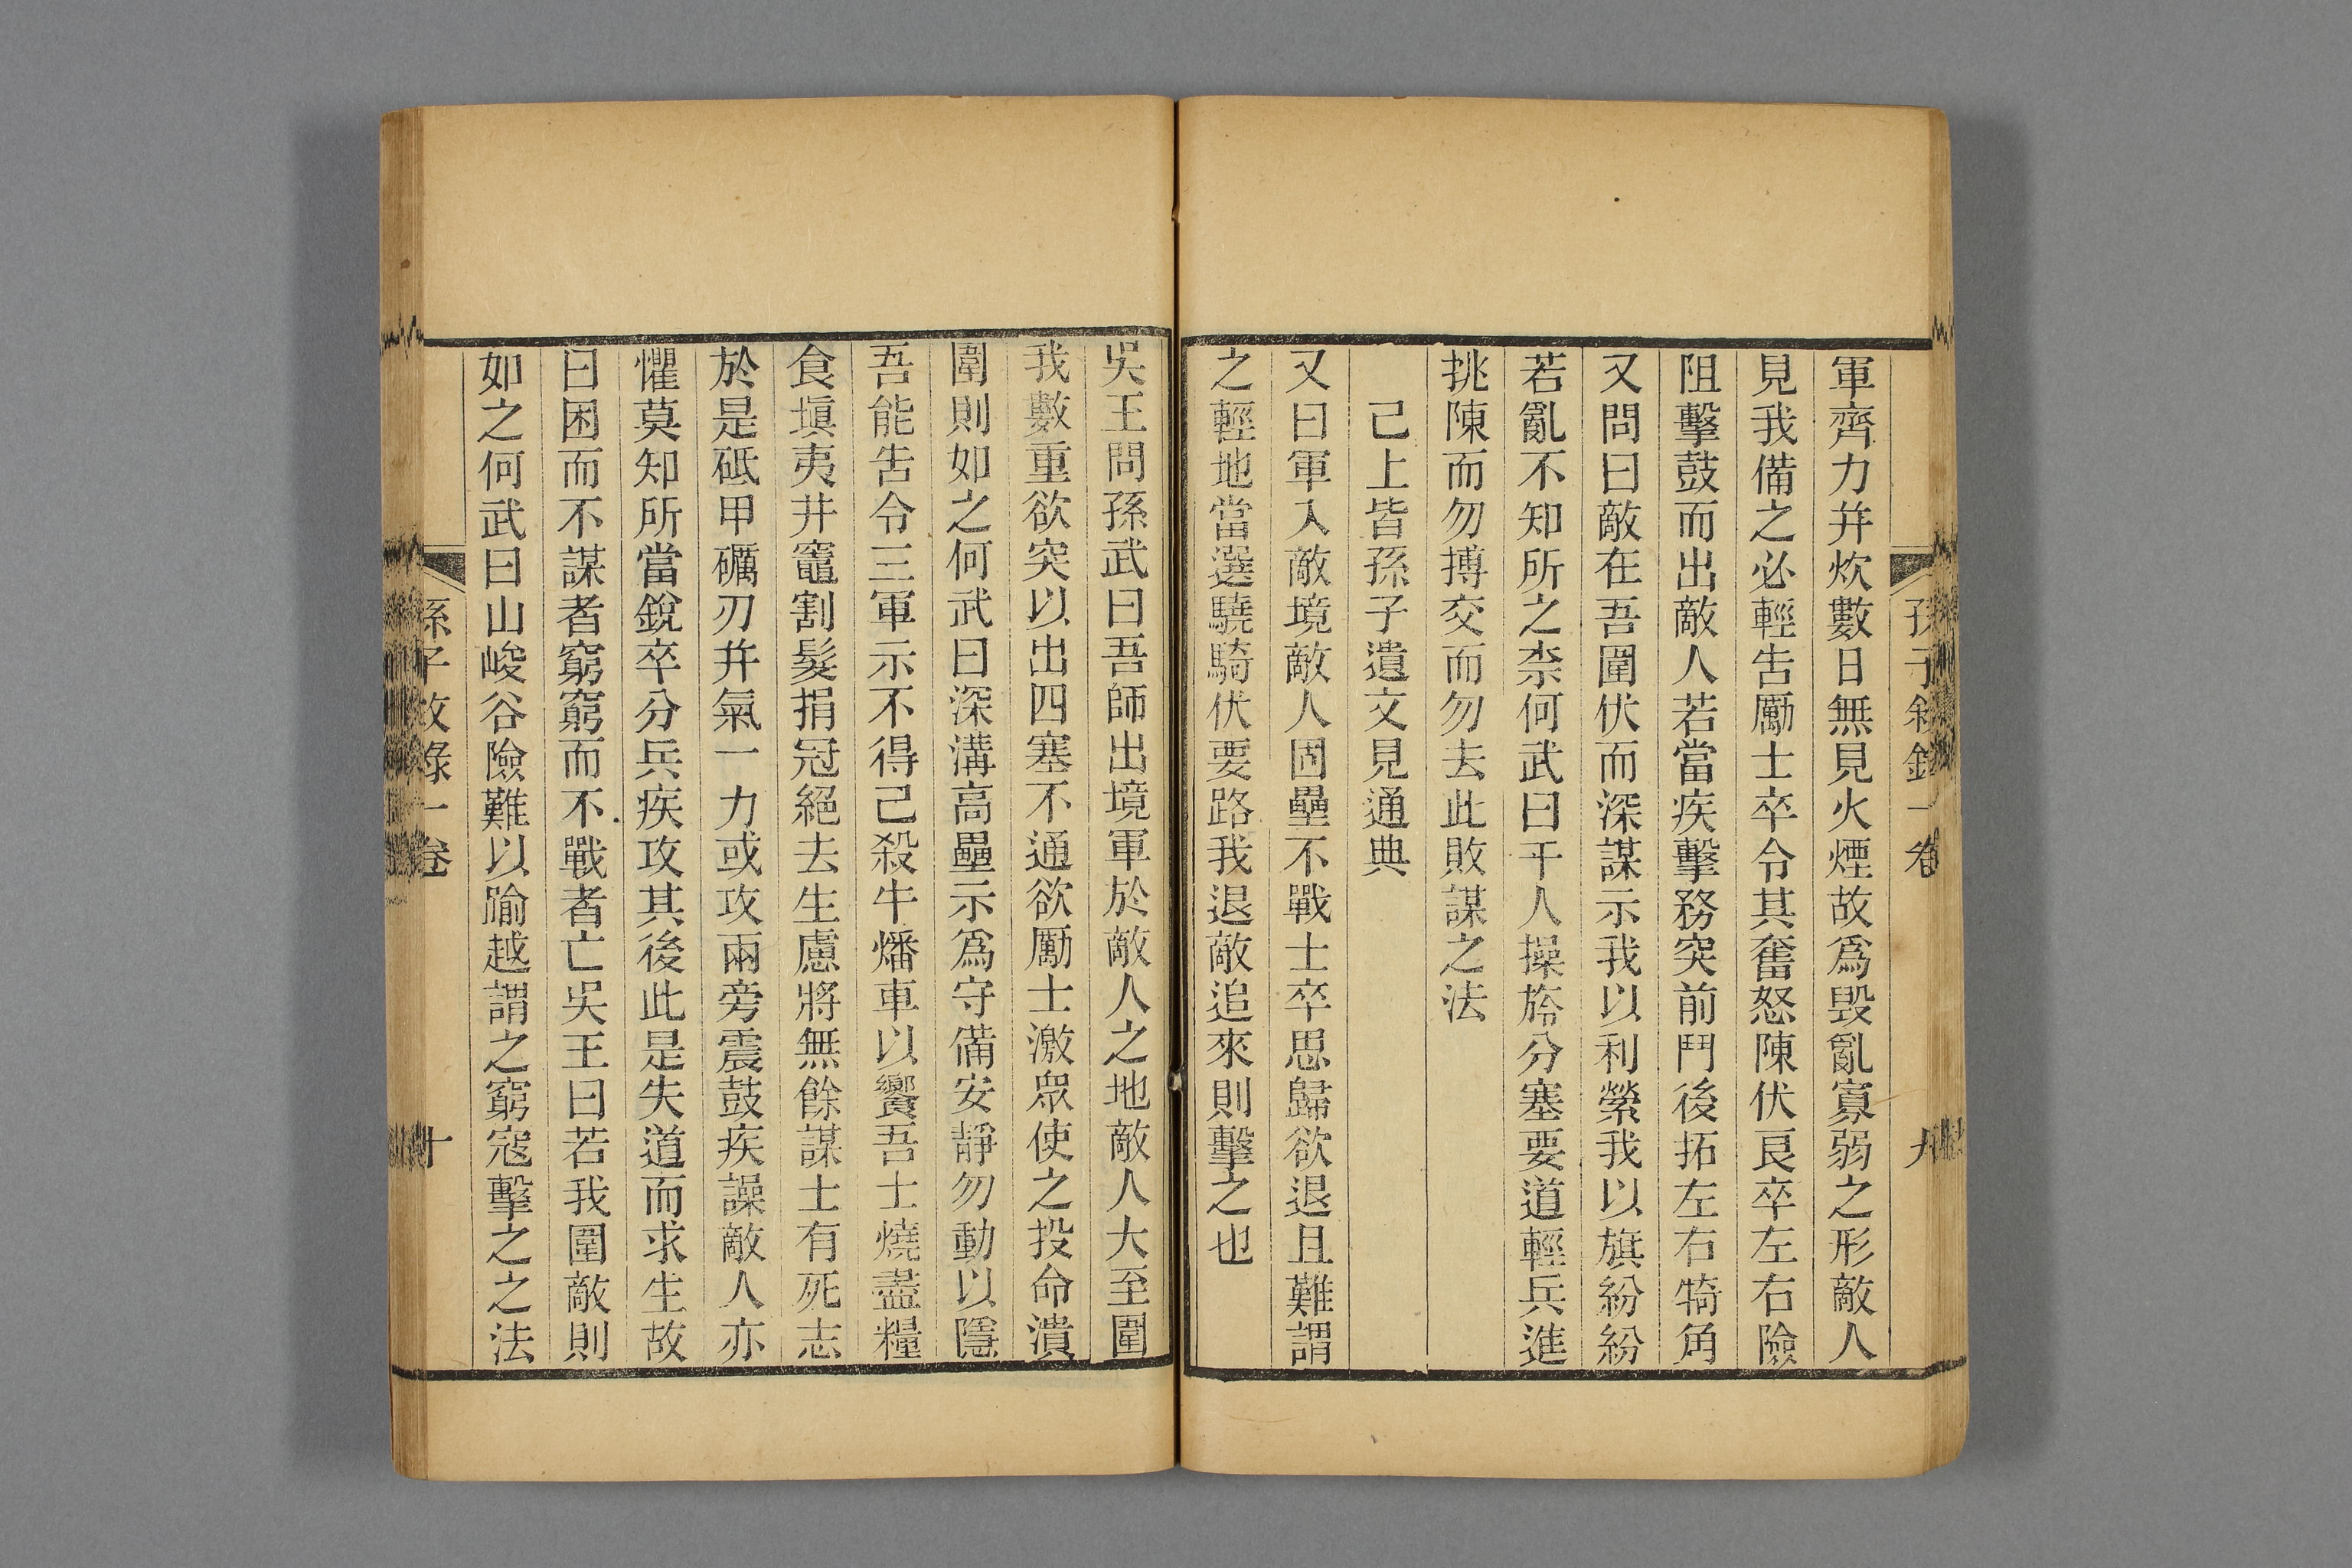 軍齊力幷炊數日無見火煙故爲毀亂寡弱之形敵人
見我備之必輕吿勵士卒令其奮怒陳伏良卒左右險
阻擊鼓而出敵人若當疾擊務突前鬥後拓左右犄角
又問曰敵在吾圍伏而深謀示我以利縈我以旗紛紛
若亂不知所之柰何武曰千人操旍分塞要道輕兵進
挑陳而勿搏交而勿去此敗謀之法
己上皆孫子遺文見通典
又曰軍入敵境敵人固壘不戰士卒思歸欲退且難謂
之輕地當選驍騎伏要路我退敵追來則擊之也
吳王問孫武曰吾師出境軍於敵人之地敵人大至圍
我數重欲突以出四塞不通欲勵士激衆使之投命潰
圍則如之何武曰深溝高壘示爲守備安靜勿動以隱
吾能吿令三軍示不得己殺牛燔車以饗吾士燒盡糧
食塡夷井竈割髮捐冠絕去生慮將無餘謀士有死志
於是砥甲礪刃幷氣一力或攻兩旁震鼓疾譟敵人亦
懼莫知所當銳卒分兵疾攻其後此是失道而求生故
曰困而不謀者窮窮而不戰者亡吳王曰若我圍敵則
如之何武曰山峻谷險難以踰越謂之窮寇擊之之法
孫子敘錄一卷
十